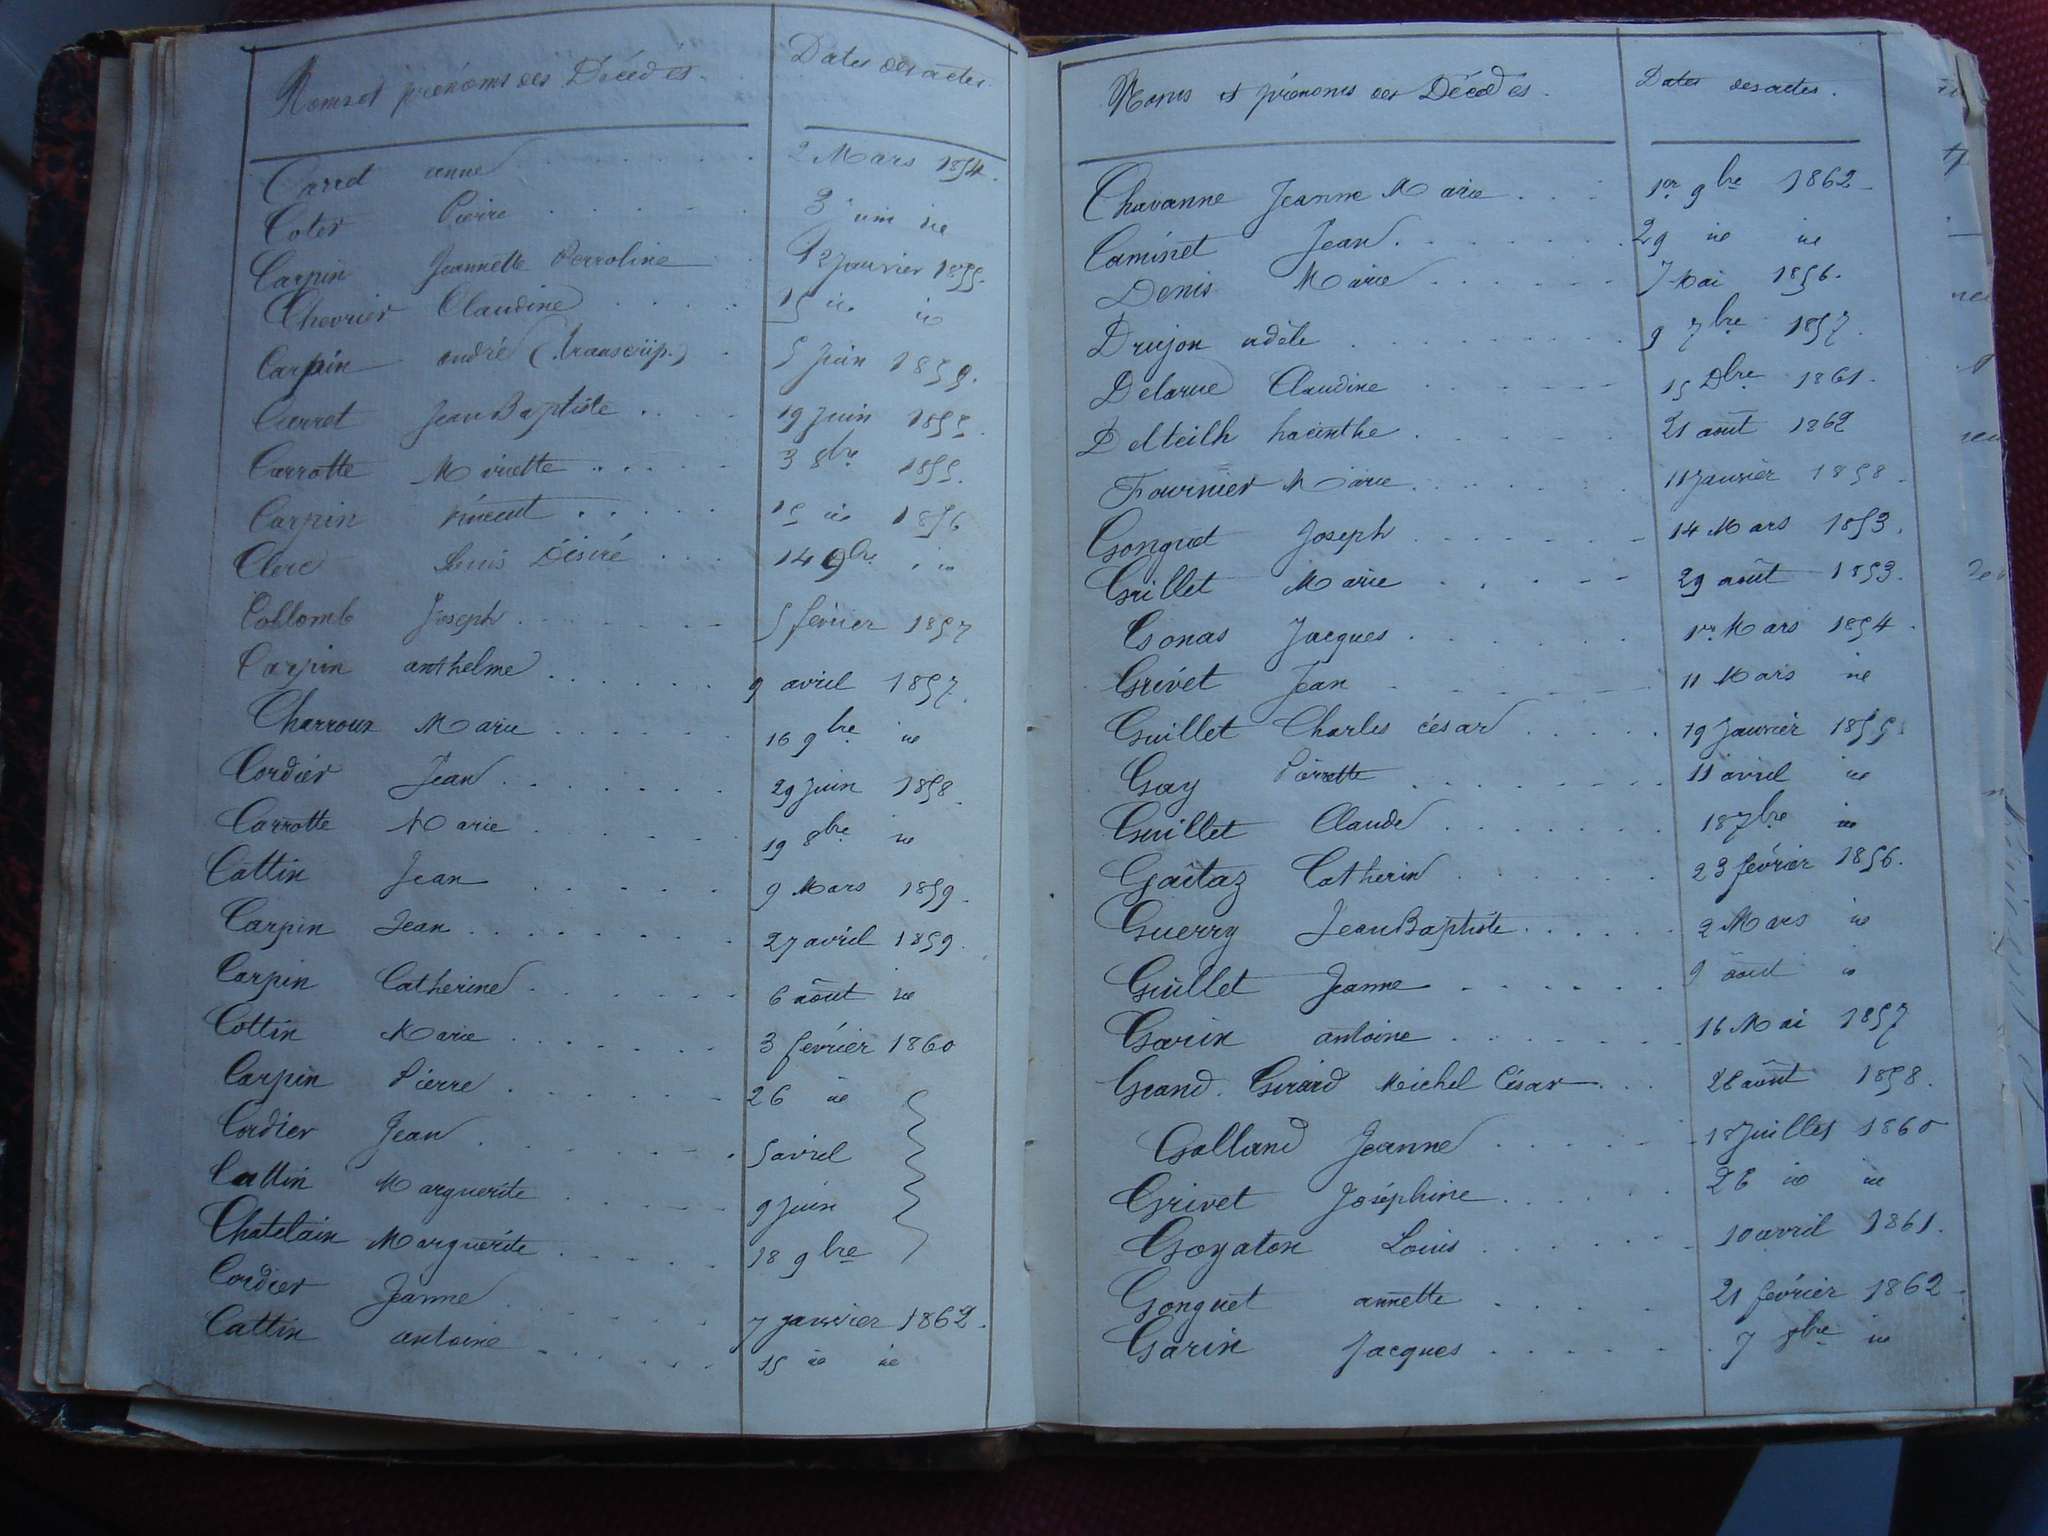 Noms et prénoms des Décédés. Dates des actes.
Carret anne 2 Mars 1854.
Coter Pierre 3 Juin id
Carpin Jeannette Perroline 12 Janvier 1855.
Chevrier Claudine 15 id id
Carpin andré (transcrip.) 5 Juin 1859.
Curret Jean Baptiste 19 Juin 1855.
Carrotte Miette 3 8bre 1855.
Carpin Vincent 15 id 1856
Clerc Louis Désiré 14 9bre id
Collomb Joseph 5 février 1857
Carpin anthelme 9 avril 1857.
Charroux Marie 16 9bre id
Cordier Jean 29 Juin 1858.
Carrotte Marie 19 8bre id
Cattin Jean 9 Mars 1859.
Carpin Jean 27 avril 1859.
Carpin Catherine 6 août id
Cottin Marie 3 février 1860
Carpin Pierre 26 id
Cordier Jean 5 avril
Cattin Marguerite 9 Juin
Chatelain Marguerite 18 9bre
Cordier Jeanne 7 janvier 1862.
Cattin antoine 15 id id
Noms et prénoms des Décédés. Dates des actes.
Chavanne Jeanne Marie 1er 9bre 1862
Caminet Jean 29 id id
Denis Marie 7 Mai 1856.
Drujon adèle 9 7bre 1857.
Delarue Claudine 15 Dbre 1861.
Delteilh hacinthe 21 août 1862
Fournier Marie 11 Janvier 1858.
Gonguet Joseph 14 Mars 1853.
Grillet Marie 29 août 1853.
Gonas Jacques 1er Mars 1854.
Grivet Jean 11 Mars id
Guillet Charles César 19 Janvier 1855.
Gay Pierrette 11 avril id
Guillet Claude 18 7bre id
Gaîtaz Catherin 23 février 1856.
Guerry Jean Baptiste 2 Mars id
Guillet Jeanne 9 août id
Garin antoine 16 Mai 1857
Grand. Girard Michel César 28 août 1858.
Golland Jeanne 18 Juillet 1860
Grivet Joséphine 26 id id
Goyaton Louis 10 avril 1861.
Gonguet annette 21 février 1862.
Garin Jacques 7 8bre id